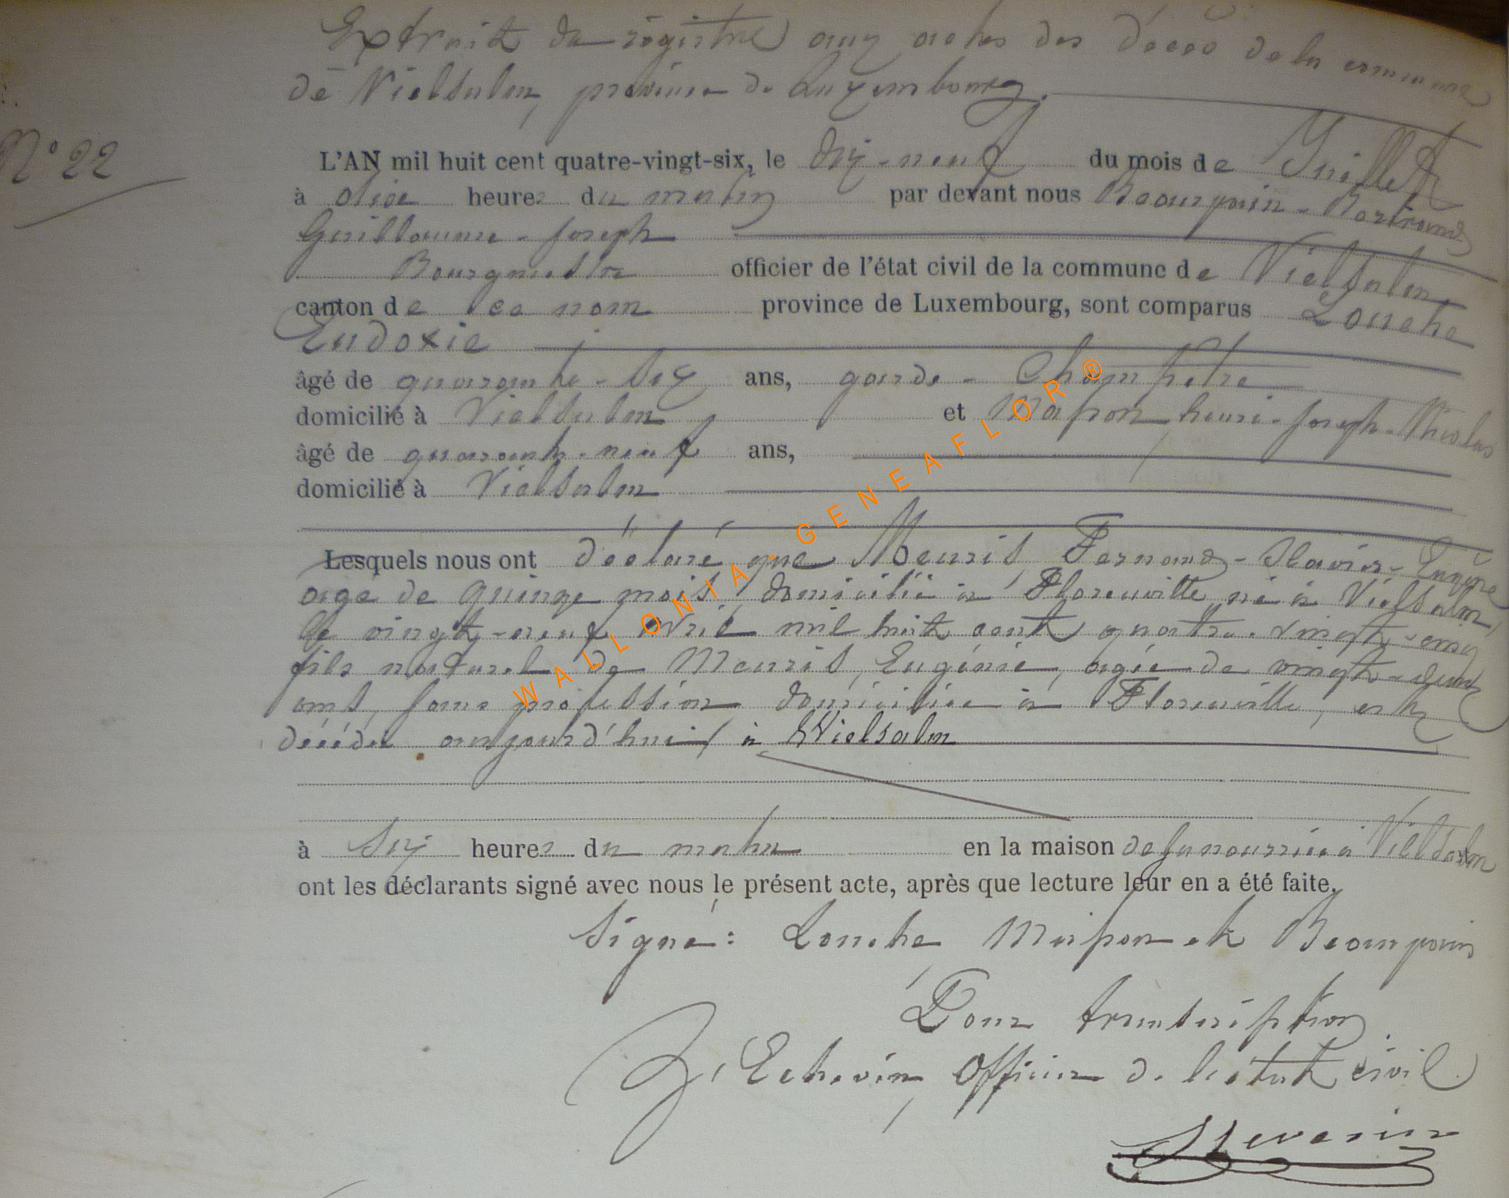 Extrait du régistre aux actes des décès de la commune
de Vielsalm, province de Luxembourg.
N° 22
L'AN mil huit cent quatre-vingt-six, le dix-neuf du mois de Juillet
à onze heures du matin par devant nous Beaupain-Bertrand
Guillaume-Joseph
Bourgmestre officier de l'état civil de la commune de Vielsalm
canton de ce nom province de Luxembourg, sont comparus Louche
Eudoxie
âgé de quarante-six ans, garde-Champêtre
domicilié à Vielsalm et Masson henri-Joseph-Nicolas
âgé de quarante-neuf ans,
domicilié à Vielsalm
Lesquels nous ont déclaré que Meuris Fernand-Xavier-Eugène
age de quinze mois, domicilié à Florenville, né à Vielsalm,
le vingt-neuf avril mil huit cent quatre-vingt-cinq
fils naturel de Meuris, Eugénie, agée de vingt-deux
ans, sans profession domiciliée à Florenville, est
décédé aujourd'hui à Vielsalm
à six heures du matin en la maison de sa nourrice à Vielsalm
ont les déclarants signé avec nous le présent acte, après que lecture leur en a été faite.
Signé: Louche Masson et Beaupain
Pour transcription
L'Echevin, Officier de l'état civil
Severin
WALLONIA-GENEAFLOR®